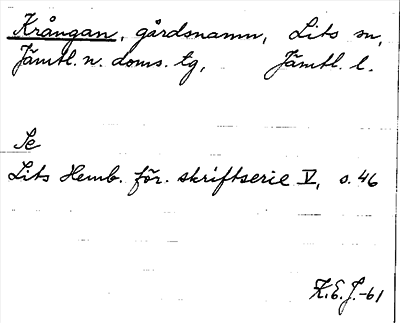 Krångan, gårdsnamn, Lits sn,
Jämtl. n. doms. tg, Jämtl. l.
Se
Lits Hemb. för. skriftserie V, s. 46
K.E.J.-61